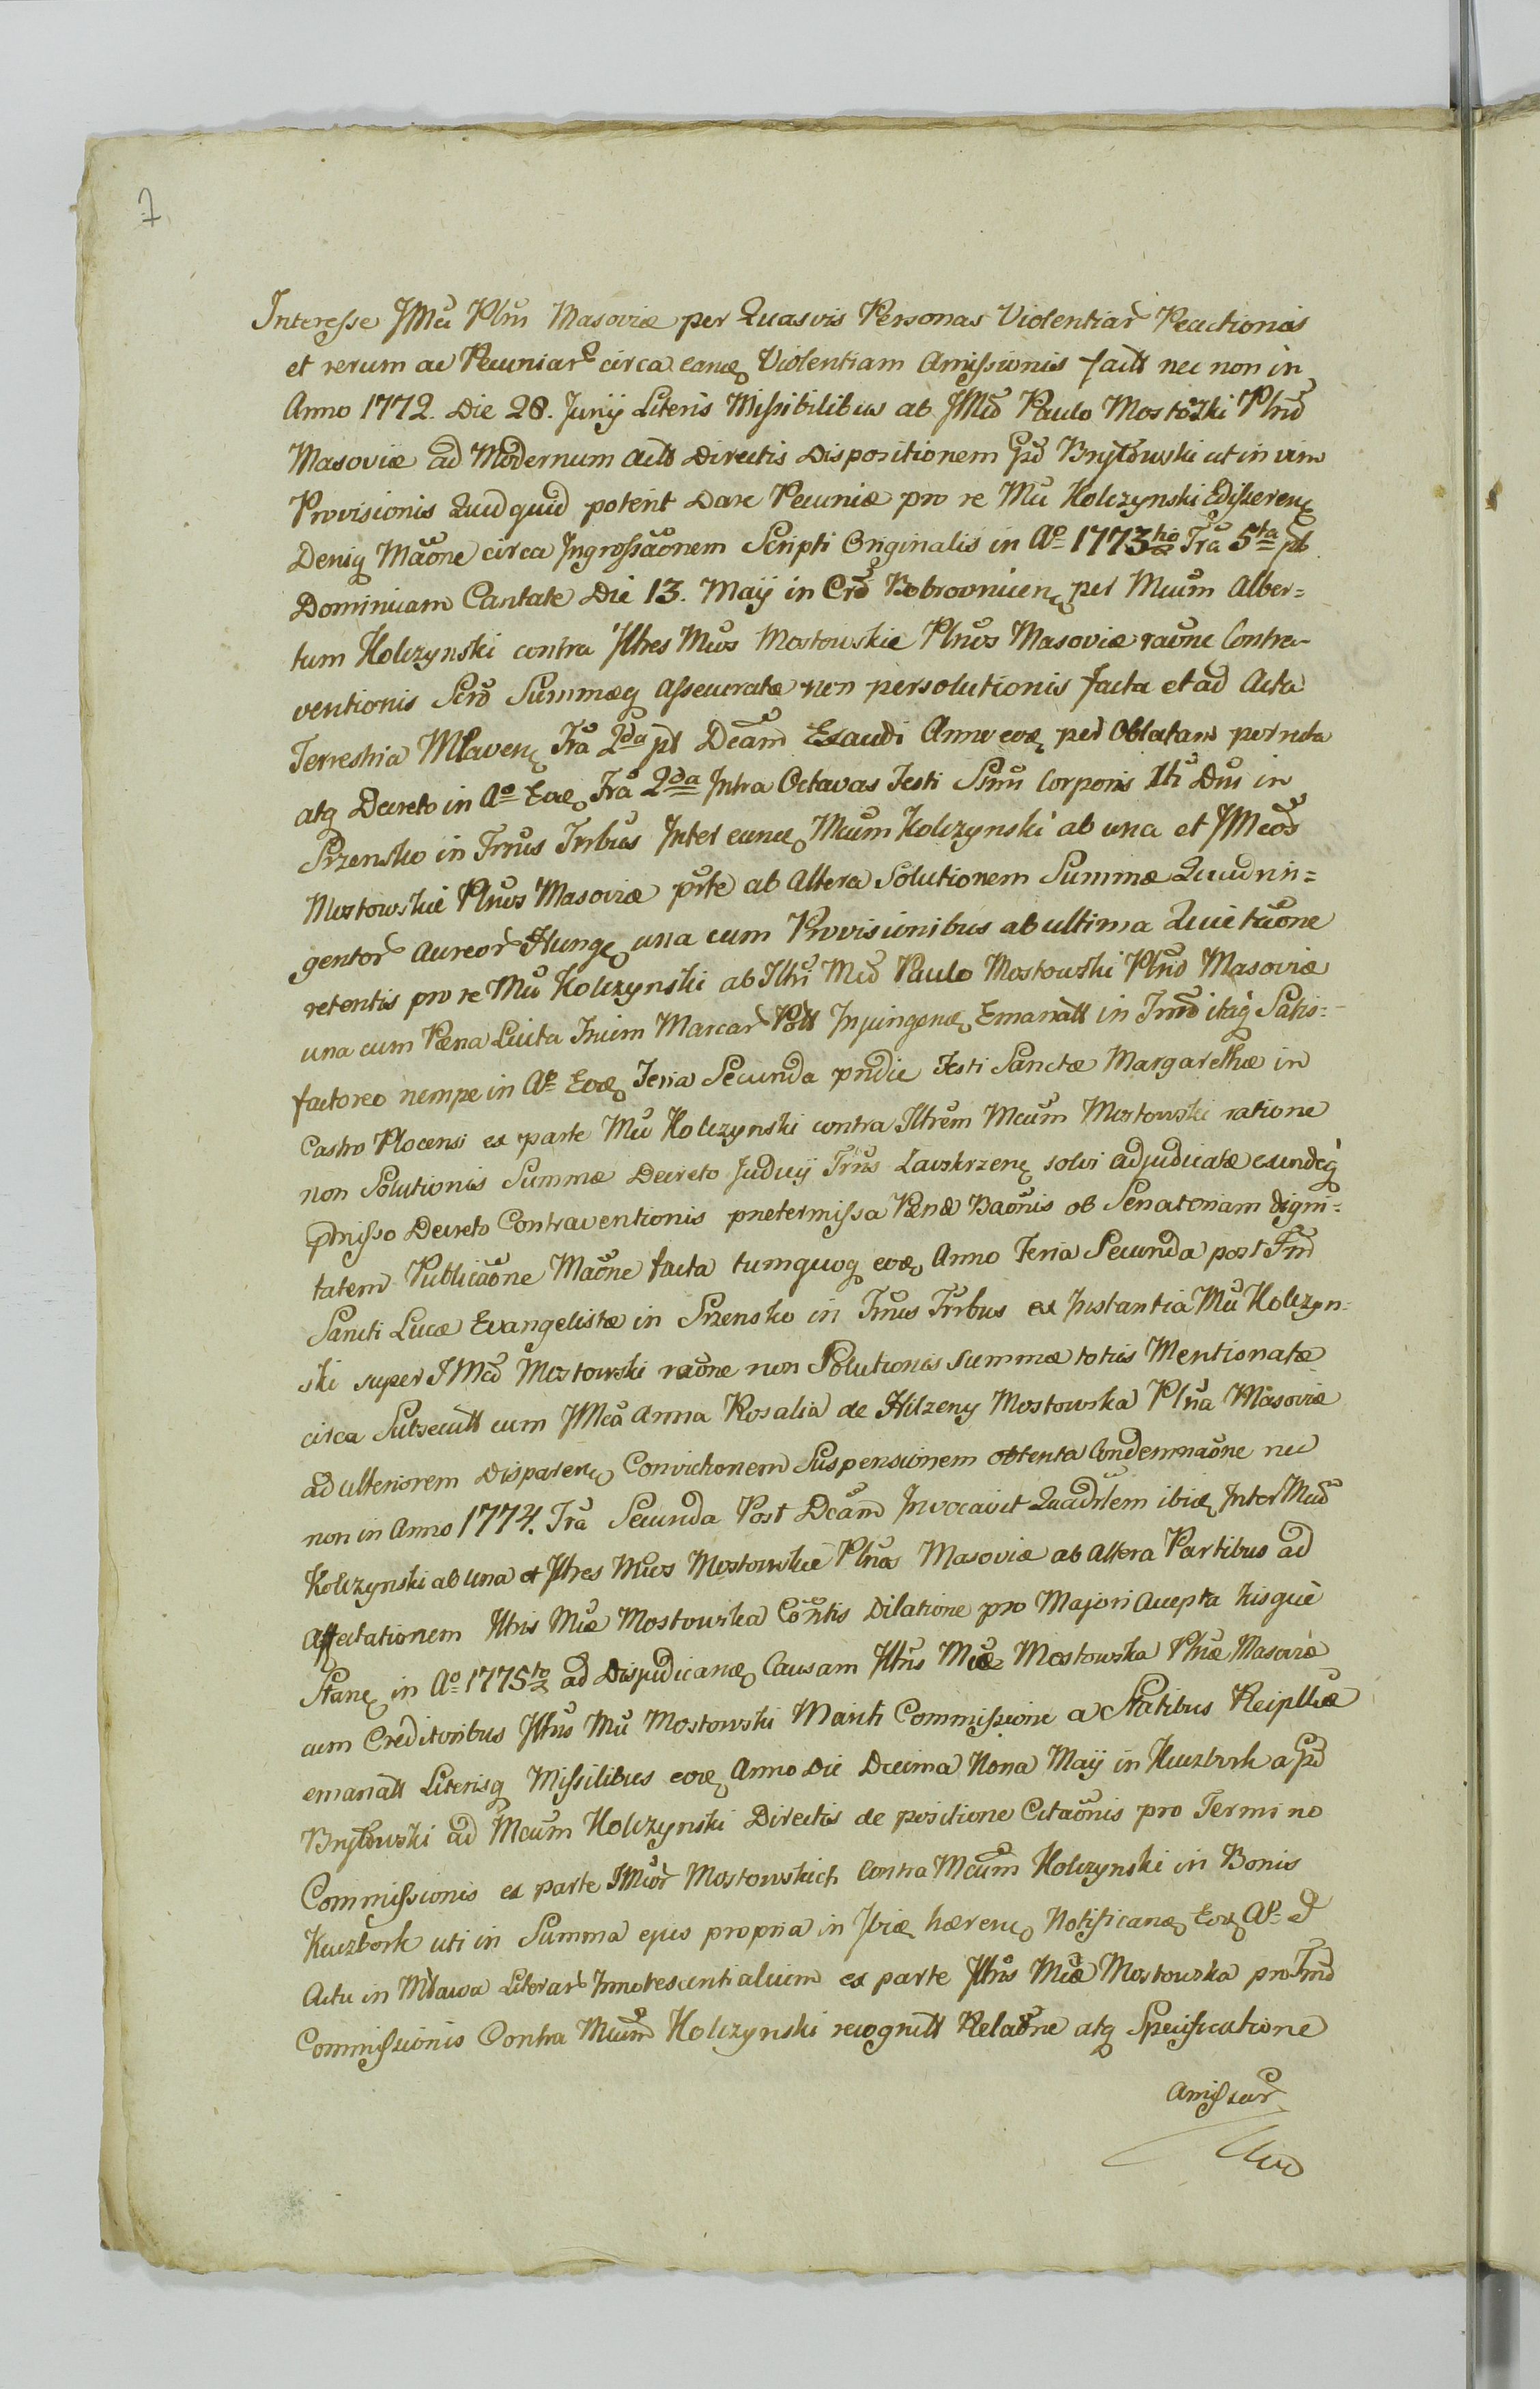 7
Interesse JMci Plni Masoviæ per Quasvis Personas Violentiar Peractionis
et rerum ac Pecuniar circa eand Violentiam Amissionis fact nec non in
Anno 1772. Die 28. Junij Literis Missibilibus ab JMcd Paulo Mostowski Plnd
Masoviæ ad Modernum Act Directis Dispositionem Gd Bryłowski ut in vim
Provisionis Quidquid poterit Dare Pecuniæ pro re Mci Kolczynski Edisseren
Deniq Maone circa Ingrossaonem Scripti Originalis in Ao 1773tio Fra 5ta pt
Dominicam Cantate Die 13. Maij in Crd Bobrovnicen per Mcum Alber=
tum Kolczynski contra Jltres Mcos Mostowskie Plnos Masoviæ raone Contra-
ventionis Scro Summæq Asseccuratæ non persolutionis facta et ad Acta
Terrestria Mlaven Fra 2da pt Dcam Exaudi Anno eod per Oblatam porrecta
atq Decreto in Ao Eod Fra 2da Intra Octavas Festi Ssmi Corporis Xti Dni in
Szrensko in Trnis Trrbus Inter eund Mcum Kolczynski ab una et JMcos
Mostowskie Plnos Masoviæ prte ab Altera Solutionem Summæ Quadrin=
gentor Aureor Hung una cum Provisionibus ab ultima Quietaone
retentis pro re Mci Kolczynski ab Jltri Mcd Paulo Mostowski Plnd Masoviæ
una cum Pæna Luita Trium Marcar Poll Injungend Emanatt in Trmd itaq Satis=
factoreo nempe in Ao Eod Feria Secunda pridie Festi Sanctæ Margarethæ in
Castro Plocensi ex parte Mci Kolczynski contra Jltrem Mcum Mostowski ratione
non Solutionis Summæ Decreto Judicij Trris Zawskrzen solvi adjudicatæ eundeq
pmisso Decreto Contraventionis prætermissa Pænæ Baonis ob Senatoriam digni=
tatem Publicaone Maone facta tumquoq eod Anno Feria Secunda post Fm
Sancti Lucæ Evangelistæ in Szrensko in Trnis Trrbus ex Instantia Mci Kolczyn=
ski super JMcd Mostowski raone non Solutionis Summæ toties Mentionatæ
circa Subsecutt cum JMca Anna Rosalia de Hilzeny Mostowska Plna Masoviæ
ad ulteriorem Disparen Convictionem Suspensionem obtenta Condemnaone nec
non in Anno 1774. Fra Secunda Post Dcam Invocavit Quadrlem ibid Inter Mcd
Kolczynski ab una et Jltres Mcos Mostowskie Plnos Masoviæ ab Altera Partibus ad
Affectationem Jltris Mcæ Mostowska Contis Dilatione pro Majori Accepta hisque
Stan in Ao 1775to ad Disjudicand Causam Jltris Mcæ Mostowska Plnæ Masoviæ
cum Creditoribus Jltris Mci Mostowski Mariti Commissione a Statibus Reiplcæ
emanatt Literisq Missilibus eod Anno Die Decima Nona Maij in Kuczbork a Gd
Bryłowski ad Mcum Kolczynski Directis de positione Citaonis pro Termino
Commissionis ex parte JMcor Mostowskich Contra Mcum Kolczynski in Bonis
Kuczbork uti in Summa ejus propria in Ibid hæren Notificand Eod Ao &
Actu in Mława Literar Innotescentialium ex parte Jltris Mcæ Mostowska pro Trmd
Commissionis Contra Mcum Kolczynski recognitt Relaone atq Specificatione
Amissar